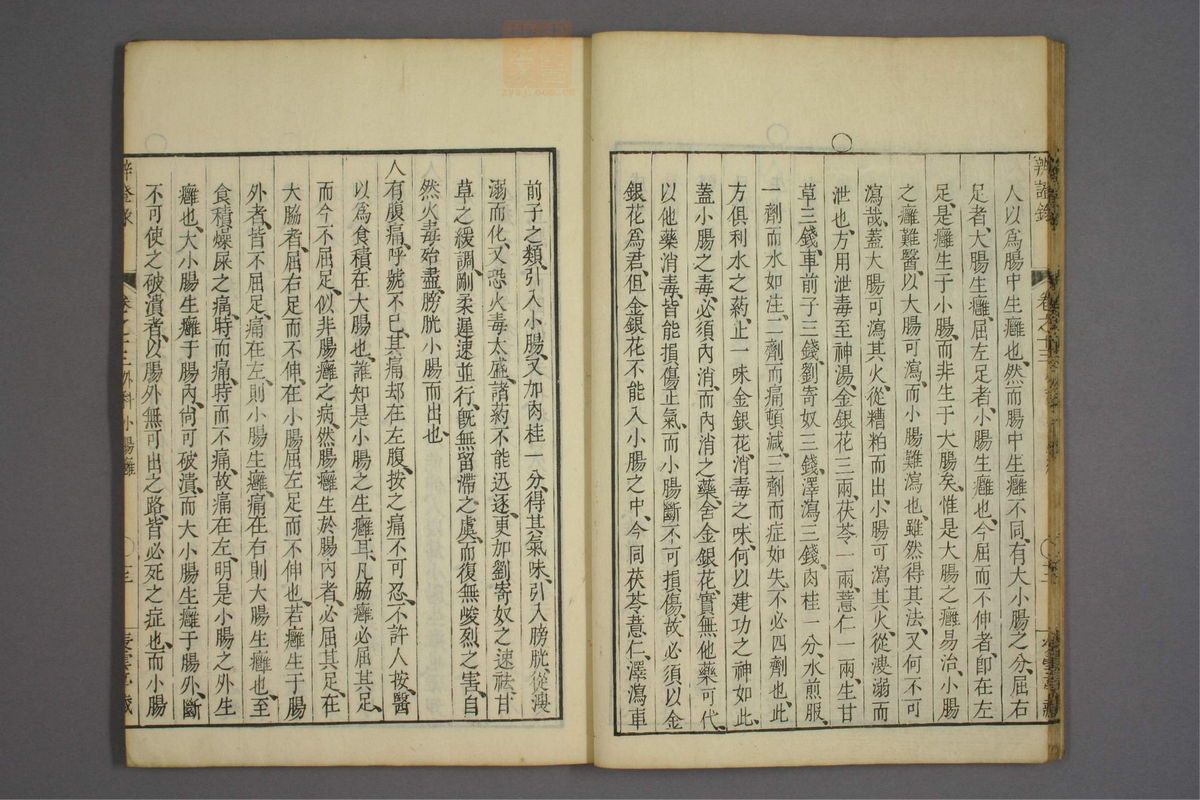 人以爲腸中生癰也、然而腸中生癰不同、有大小腸之分、屈右
足者、大腸生癰、屈左足者、小腸生癰也、今屈而不伸者、卽在左
足、是癰生于小腸、而非生于大腸矣、惟是大腸之癰易治、小腸
之癰難醫、以大腸可瀉、而小腸難瀉也、雖然得其法、又何不可
瀉哉、蓋大腸可瀉其火、從糟粕而出、小腸可瀉其火、從溲溺而
泄也、方用泄毒至神湯、金銀花三兩、茯苓一兩、薏仁一兩、生甘
草三錢、車前子三錢、劉寄奴三錢、澤瀉三錢、肉桂一分、水煎服、
一劑而水如注、二劑而痛頓減、三劑而症如失、不必四劑也、此
方俱利水之葯、止一味金銀花消毒之味、何以建功之神如此、
蓋小腸之毒、必須內消、而內消之藥、舍金銀花、實無他藥可代、
以他藥消毒、皆能損傷正氣、而小腸斷不可損傷、故必須以金
銀花爲君、但金銀花不能入小腸之中、今同茯苓薏仁、澤瀉車
辨證錄 卷之十三
前子之類、引入小腸、又加肉桂一分、得其氣味、引入膀胱、從溲
溺而化、又恐火毒太盛、諸葯不能迅逐、更加劉寄奴之速祛、甘
草之緩調、剛柔遲速並行、旣無留滯之虞、而復無峻烈之害、自
然火毒殆盡、膀胱小腸而出也、
人有腹痛、呼號不已、其痛却在左腹、按之痛不可忍、不許人按、醫
以爲食積在大腸也、誰知是小腸之生癰耳、凡腸癰必屈其足、
而今不屈足、似非腸癰之病、然腸癰生於腸內者、必屈其足、在
大腸者、屈右足而不伸、在小腸屈左足而不伸也、若癰生于腸
外者、皆不屈足、痛在左、則小腸生癰、痛在右則大腸生癰也、至
食積燥屎之痛、時而痛、時而不痛、故痛在左、明是小腸之外生
癰也、大小腸生癰于腸內、尙可破潰、而大小腸生癰于腸外、斷
不可使之破潰者、以腸外無可出之路、皆必死之症也、而小腸
卷之十三 外科 小腸癰